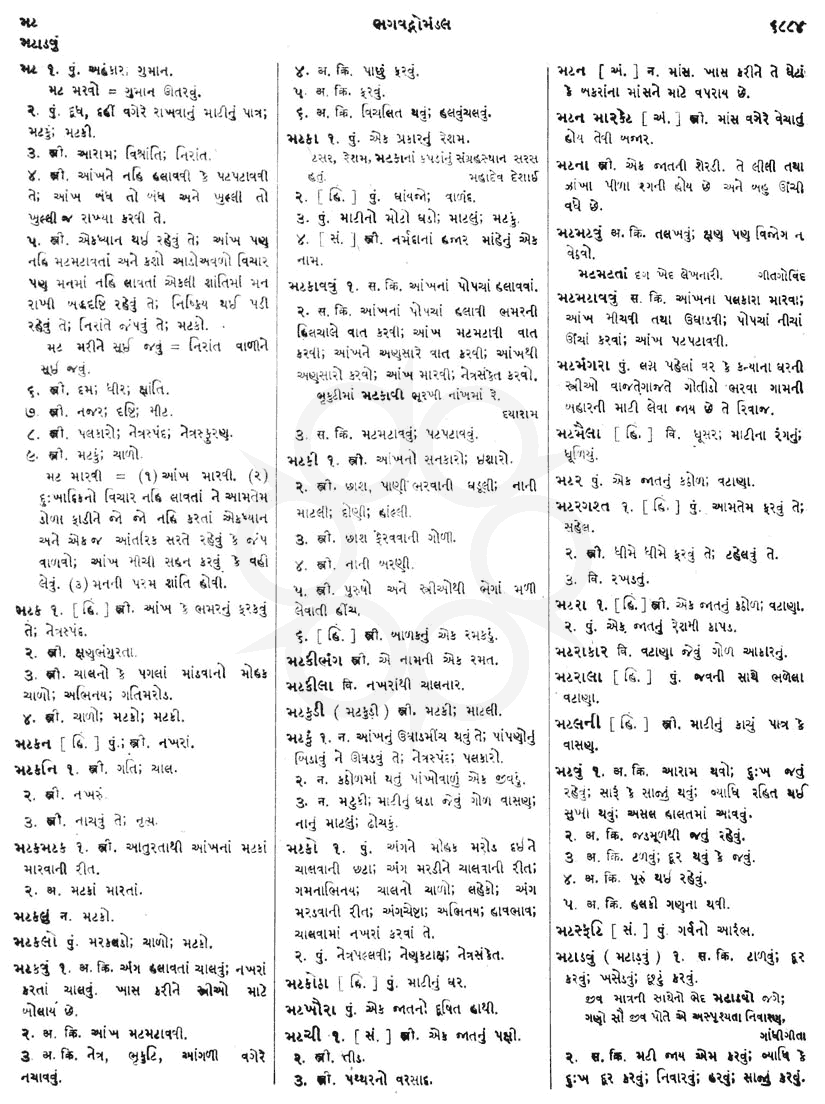 મટ
મટાડવું
ભગવદ્ગોમંડલ
૬૮૮૪
મટ ૧. પું. અહંકાર; ગુમાન.
મટ મરવો = ગુમાન ઊતરવું.
૨. પું. દૂધ, દહીં વગેરે રાખવાનું માટીનું પાત્ર;
મટકું; મટકી.
૩. સ્ત્રી. આરામ; વિશ્રાંતિ; નિરાંત.
૪. સ્ત્રી. આંખને નહિ હલાવવી કે પટપટાવવી
તે; આંખ બંધ તો બંધ અને ખુલ્લી તો
ખુલ્લી જ રાખ્યા કરવી તે.
૫. સ્ત્રી. એકધ્યાન થઈ રહેવું તે; આંખ પણ
નહિ મટમટાવતાં અને કશો આડોઅવળો વિચાર
પણ મનમાં નહિ લાવતાં એકલી શાંતિમાં મન
રાખી બહ્મદૃષ્ટિ રહેવું તે; નિષ્ક્રિય થઈ પડી
રહેવું તે; નિરાંતે જંપવું તે; મટકો.
મટ મરીને સૂઈ જવું = નિરાંત વાળીને
સૂઈ જવું.
૬. સ્ત્રી. દમ; ધીર; ક્ષાંતિ.
૭. સ્ત્રી. નજર; દૃષ્ટિ; મીટ.
૮. સ્ત્રી. પલકારો; નેત્રસ્પંદ; નેત્રસ્ફુરણ.
૯. સ્ત્રી. મટકું; ચાળો.
મટ મારવી = (૧) આંખ મારવી. (૨)
દુઃખાદિકનો વિચાર નહિ લાવતાં ને આમતેમ
ડોળા ફાડીને જો જો નહિ કરતાં એકધ્યાન
અને એક જ આંતરિક સરતે રહેવું કે જંપ
વાળવો; આંખ મીચી સહન કરવું કે વહી
લેવું. (૩) મનની પરમ શાંતિ હોવી.
મટક ૧. [ હિં. ] સ્ત્રી. આંખ કે ભમરનું ફરકવું
તે; નેત્રસ્પંદ.
૨. સ્ત્રી. ક્ષણભંગુરતા.
૩. સ્ત્રી. ચાલનો કે પગલાં માંડવાનો મોહક
ચાળો; અભિનય; ગતિમરોડ.
૪. સ્ત્રી. ચાળો; મટકો; મટકી.
મટકન [ હિં. ] પું.; સ્ત્રી. નખરાં.
મટકનિ ૧. સ્ત્રી. ગતિ; ચાલ.
૨. સ્ત્રી. નખરું.
૩. સ્ત્રી. નાચવું તે; નૃત્ય.
મટકમટક ૧. સ્ત્રી. આતુરતાથી આંખનાં મટકાં
મારવાની રીત.
૨. અ. મટકાં મારતાં.
મટકલું ન. મટકો.
મટકલો પું. મરકલડો; ચાળો; મટકો.
મટકવું ૧. અ. ક્રિ. અંગ હલાવતાં ચાલવું; નખરાં
કરતાં ચાલવું. ખાસ કરીને સ્ત્રીઓ માટે
બોલાય છે.
૨. અ. ક્રિ. આંખ મટમટાવવી.
૩. અ. ક્રિ. નેત્ર, ભૃકુટિ, આંગળી વગેરે
નચાવવું.
૪. અ. ક્રિ. પાછું ફરવું.
૫. અ. ક્રિ. ફરવું.
૬. અ. ક્રિ. વિચલિત થવું; હલવુંચલવું.
મટકા ૧. પું. એક પ્રકારનું રેશમ.
ટસર, રેશમ, મટકાનાં કપડાંનું સંગ્રહસ્થાન સરસ
હતું. મહાદેવ દેશાઈ
૨. [ હિં. ] પું. ઘાંયજો; વાળંદ.
૩. પું. માટીનો મોટો ઘડો; માટલું; મટકું.
૪. [ સં. ] સ્ત્રી. નર્મદાનાં હજાર માંહેનું એક
નામ.
મટકાવવું ૧. સ. ક્રિ. આંખનાં પોપચાં હલાવવાં.
૨. સ. ક્રિ. આંખનાં પોપચાં હલાવી ભમરની
હિલચાલે વાત કરવી; આંખ મટમટાવી વાત
કરવી; આંખને અણુસારે વાત કરવી; આંખથી
અણુસારો કરવો; આંખ મારવી; નેત્રસંકેત કરવો.
ભૃકુટીમાં મટકાવી ભૂરખી નાંખમાં રે.
દયારામ
૩. સ. ક્રિ. મટમટાવવું; પટપટાવવું.
મટકી ૧. સ્ત્રી. આંખનો સનકારો; ઇશારો.
૨. સ્ત્રી. છાશ, પાણી ભરવાની ઘડૂલી; નાની
માટલી; દોણી; હાંલ્લી.
૩. સ્ત્રી. છાશ ફેરવવાની ગોળી.
૪. સ્ત્રી. નાની બરણી.
૫. સ્ત્રી. પુરુષો અને સ્ત્રીઓથી ભેગાં મળી
લેવાતી હીંચ.
૬. [ હિં. ] સ્ત્રી. બાળકનું એક રમકડું.
મટકીભંગ સ્ત્રી. એ નામની એક રમત.
મટકીલા વિ. નખરાંથી ચાલનાર.
મટકુડી ( મટકુડ઼ી ) સ્ત્રી. મટકી; માટલી.
મટકું ૧. ન. આંખનું ઉઘાડમીંચ થવું તે; પાંપણોનું
બિડાવું ને ઊઘડવું તે; નેત્રસ્પંદ; પલકારો.
૨. ન. કઠોળમાં થતું પાંખોવાળું એક જીવડું.
૩. ન. મટુકી; માટીનું ઘડા જેવું ગોળ વાસણ;
નાનું માટલું; ઢોચકું.
મટકો ૧. પું. અંગને મોહક મરોડ દઈને
ચાલવાની છટા; અંગ મરડીને ચાલવાની રીત;
ગમનાભિનય; ચાલનો ચાળો; લહેકો; અંગ
મરડવાની રીત; અંગચેષ્ટા; અભિનય; હાવભાવ;
ચાલવામાં નખરાં કરવાં તે.
૨. પું. નેત્રપલ્લવી; નેણકટાક્ષ; નેત્રસંકેત.
મટકોઠા [ હિં. ] પું. માટીનું ઘર.
મટખૌરા પું. એક જાતનો દૂષિત હાથી.
મટચી ૧. [ સં. ] સ્ત્રી. એક જાતનું પક્ષી.
૨. સ્ત્રી. તીડ.
૩. સ્ત્રી. પથ્થરનો વરસાદ.
મટન [ અં. ] ન. માંસ. ખાસ કરીને તે ઘેટાં
કે બકરાંના માંસને માટે વપરાય છે.
મટન મારકેટ [ અં. ] સ્ત્રી. માંસ વગેરે વેચાતું
હોય તેવી બજાર.
મટના સ્ત્રી. એક જાતની શેરડી. તે લીલી તથા
ઝાંખા પીળા રંગની હોય છે અને બહુ ઊંચી
વધે છે.
મટમટવું અ. ક્રિ. તલખવું; ક્ષણ પણ વિજોગ ન
વેઠવો.
મટમટતાં દગ ખેદ લેખનારી. ગીતગોવિંદ
મટમટાવવું સ. ક્રિ. આંખના પલકારા મારવા;
આંખ મીચવી તથા ઉઘાડવી; પોપચાં નીચાં
ઊંચાં કરવાં; આંખ પટપટાવવી.
મટમંગરા પું. લગ્ન પહેલાં વર કે કન્યાના ઘરની
સ્ત્રીઓ વાજતેગાજતે ગોતીડો ભરવા ગામની
બહારની માટી લેવા જાય છે તે રિવાજ.
મટમૈલા [ હિં. ] વિ. ધૂસર; માટીના રંગનું;
ધૂળિયું.
મટર પું. એક જાતનું કઠોળ; વટાણા.
મટરગશ્ત ૧. [ હિં. ] પું. આમતેમ ફરવું તે;
સહેલ.
૨. સ્ત્રી. ધીમે ધીમે ફરવું તે; ટહેલવું તે.
૩. વિ. રખડતું.
મટરા ૧. [ હિં. ] સ્ત્રી. એક જાતનું કઠોળ; વટાણા.
૨. પું. એક જાતનું રેશમી કાપડ.
મટરાકાર વિ. વટાણા જેવું ગોળ આકારનું.
મટરાલા [ હિં. ] પું. જવની સાથે ભળેલા
વટાણા.
મટલની [ હિં. ] સ્ત્રી. માટીનું કાચું પાત્ર કે
વાસણ.
મટવું ૧. અ. ક્રિ. આરામ થવો; દુઃખ જતું
રહેવું; સારૂં કે સાજું થવું; વ્યાધિ રહિત થઈ
સુખી થવું; અસલ હાલતમાં આવવું.
૨. અ. ક્રિ. જડમૂળથી જતું રહેવું.
૩ અ. ક્રિ. ટળવું; દૂર થવું કે જવું.
૪. અ. ક્રિ. પૂરું થઈ રહેવું.
૫. અ. ક્રિ. હલકી ગણના થવી.
મટસ્ફટિ [ સં. ] પું. ગર્વનો આરંભ.
મટાડવું ( મટાડ઼વું ) ૧. સ. ક્રિ. ટાળવું; દૂર
કરવું; ખસેડવું; છૂટું કરવું.
જીવ માત્રની સાથેનો ભેદ મટાડવો જગે;
ગણો સૌ જીવ પોતે એ અસ્પૃશ્યતા નિવારણ,
ગાંધીગીતા
૨. સ. ક્રિ. મટી જાય એમ કરવું; વ્યાધિ કે
દુઃખ દૂર કરવું; નિવારવું; હરવું; સાજું કરવું.